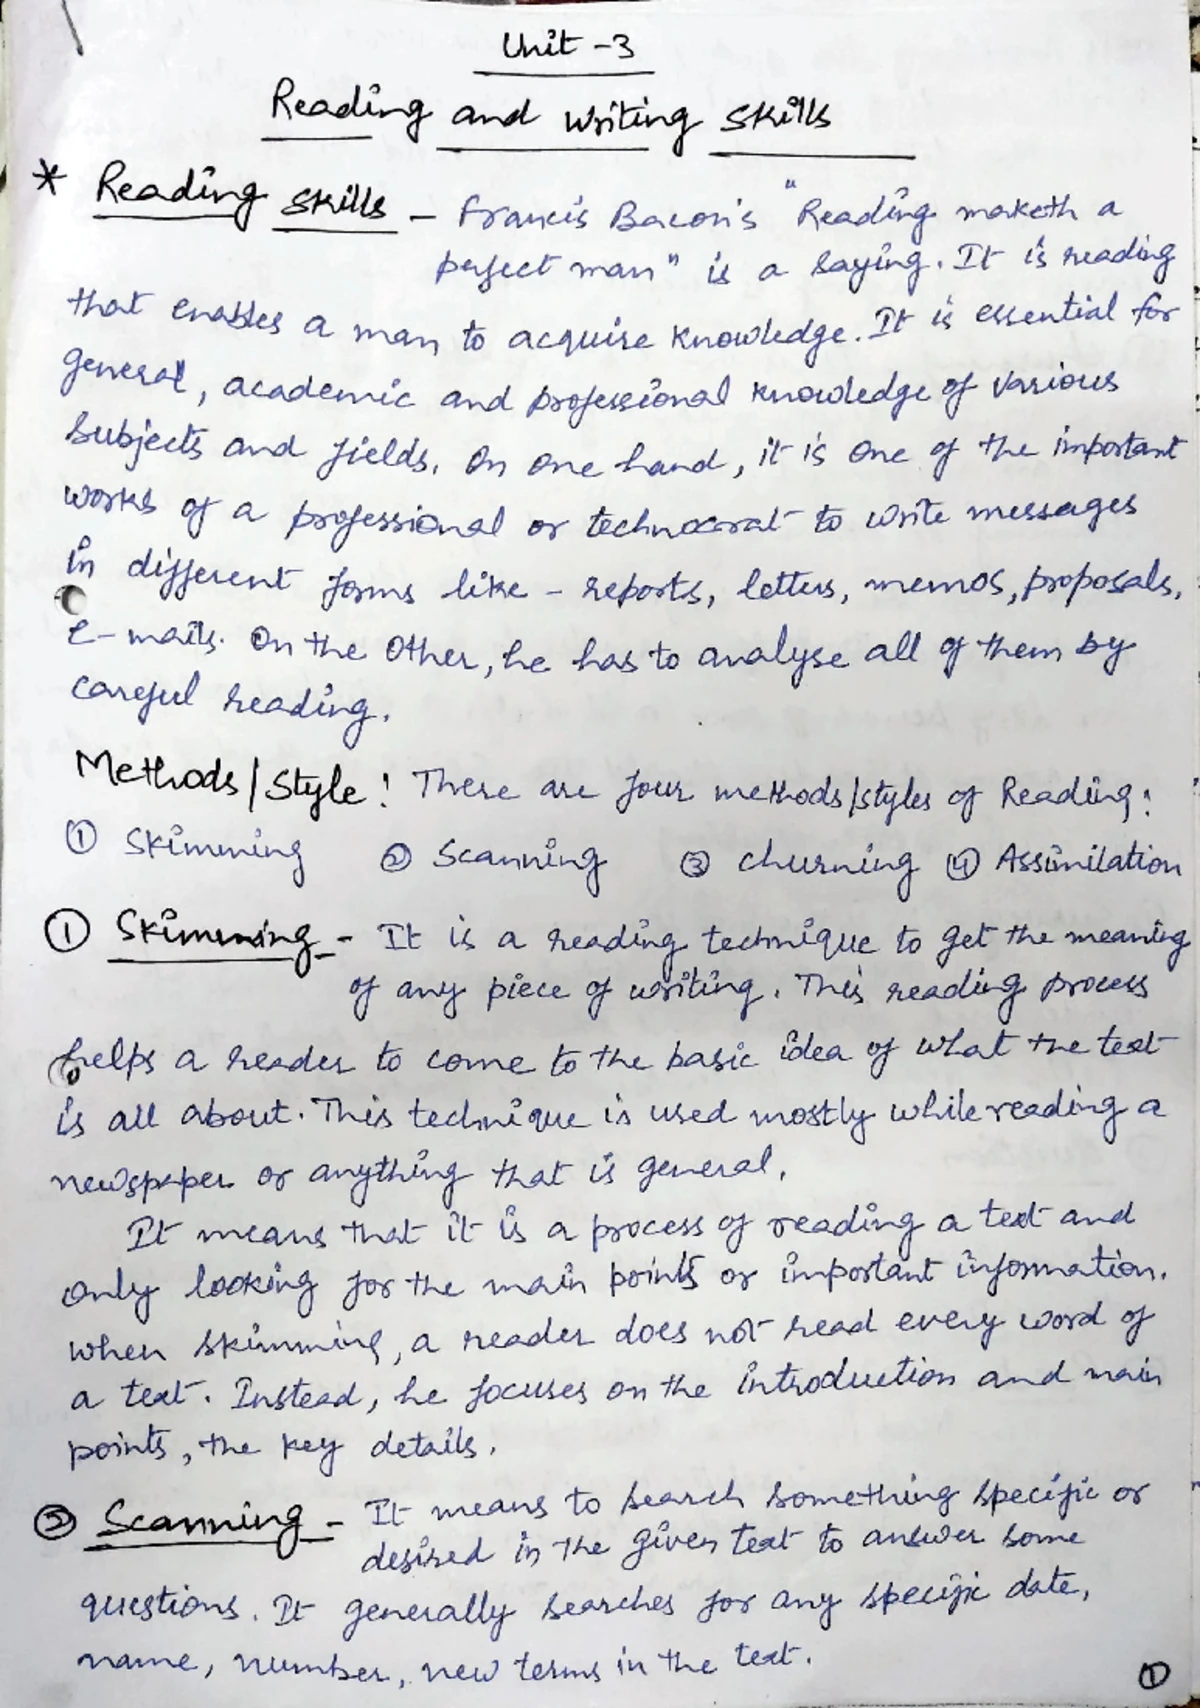 Unit -3
Reading and Writing Skills
* Reading Skills - Francis Bacon's "Reading maketh a
perfect man" is a saying. It is reading
that enables a man to acquire knowledge. It is essential for
general, academic and professional knowledge of various
subjects and fields. On one hand, it is one of the important
works of a professional or technocrat to write messages
in different forms like - reports, letters, memos, proposals,
e-mails. On the other, he has to analyse all of them by
careful reading.
Methods/Style: There are four methods/styles of Reading:
① Skimming ② Scanning ③ Churning ④ Assimilation
① Skimming - It is a reading technique to get the meaning
of any piece of writing. This reading process
helps a reader to come to the basic idea of what the text
is all about. This technique is used mostly while reading a
newspaper or anything that is general.
It means that it is a process of reading a text and
only looking for the main points or important information.
When skimming, a reader does not read every word of
a text. Instead, he focuses on the introduction and main
points, the key details.
② Scanning - It means to search something specific or
desired in the given text to answer some
questions. It generally searches for any specific date,
name, number, new terms in the text.
①